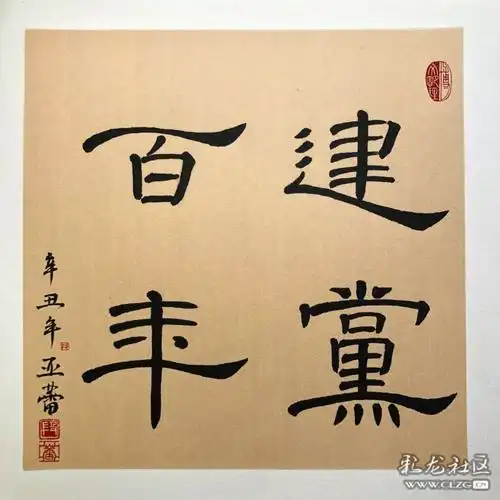 建黨
百年
辛丑年亚蕾
彩龙社区
WWW.CLZG.CN